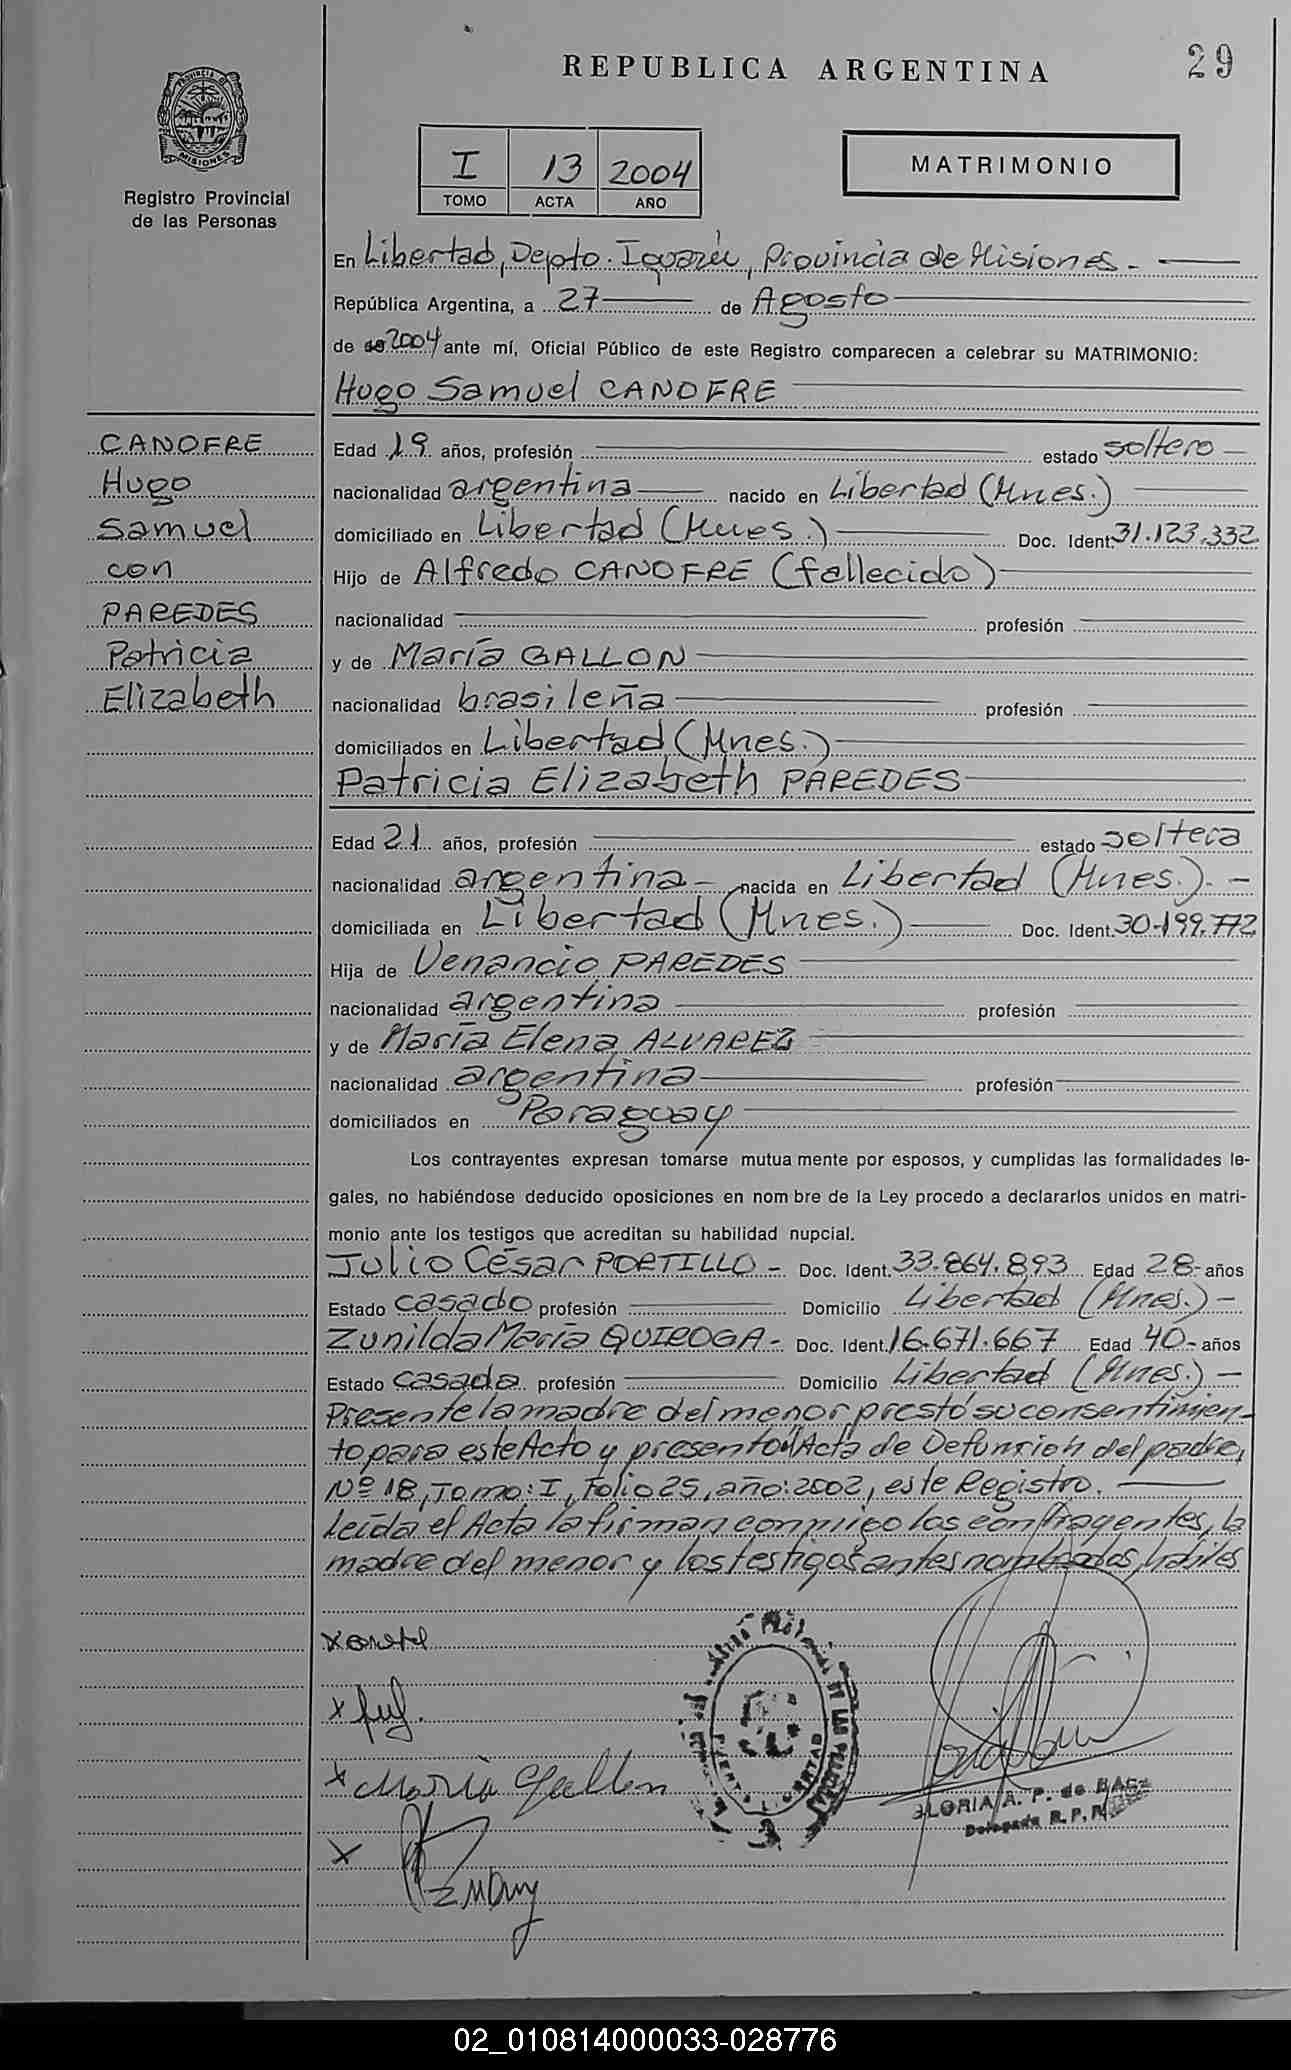 REPUBLICA ARGENTINA
29
PROVINCIA DE MISIONES
Registro Provincial
de las Personas
I 13 2004
TOMO ACTA AÑO
MATRIMONIO
En Libertad, Depto. Iguazú, Provincia de Misiones.-
República Argentina, a 27 de Agosto
de 2004 ante mí, Oficial Público de este Registro comparecen a celebrar su MATRIMONIO:
Hugo Samuel CANOFRE
CANOFRE
Hugo
Samuel
con
PAREDES
Patricia
Elizabeth
Edad 19 años, profesión estado soltero
nacionalidad argentina nacido en Libertad (Mnes.)
domiciliado en Libertad (Mnes.) Doc. Ident. 31.123.332
Hijo de Alfredo CANOFRE (fallecido)
nacionalidad profesión
y de María GALLON
nacionalidad brasileña profesión
domiciliados en Libertad (Mnes.)
Patricia Elizabeth PAREDES
Edad 21 años, profesión estado soltera
nacionalidad argentina nacida en Libertad (Mnes.).-
domiciliada en Libertad (Mnes.) Doc. Ident. 30.199.772
Hija de Venancio PAREDES
nacionalidad argentina profesión
y de María Elena ALVAREZ
nacionalidad argentina profesión
domiciliados en Paraguay
Los contrayentes expresan tomarse mutua mente por esposos, y cumplidas las formalidades le-
gales, no habiéndose deducido oposiciones en nom bre de la Ley procedo a declararlos unidos en matri-
monio ante los testigos que acreditan su habilidad nupcial.
Julio César PORTILLO - Doc. Ident. 33.864.893 Edad 28- años
Estado casado profesión Domicilio Libertad (Mnes.)-
Zunilda María QUIROGA- Doc. Ident. 16.671.667 Edad 40- años
Estado casada profesión Domicilio Libertad (Mnes.)-
Presente la madre del menor prestó su consentimien-
to para este Acto y presentó Acta de Defunción del padre,
Nº 18, Tomo: I, Folio 25, año: 2002, este Registro.
Leída el Acta la firman conmigo los contrayentes, la
madre del menor y los testigos antes nombrados, hábiles
x
x
x María Gallon
x
LIBERTAD
GLORIA A. P. de
Delegada R. P. P.
02_010814000033-028776